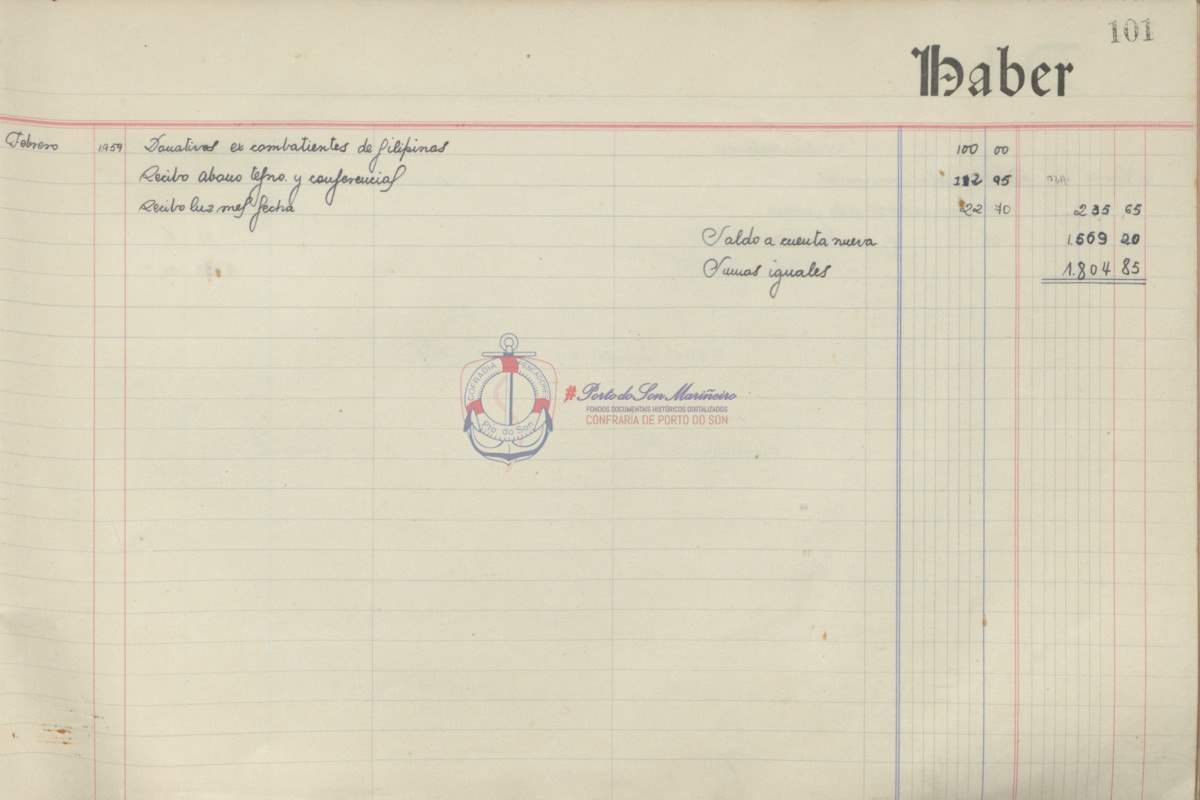 101
Haber
Febrero 1959 Donativos ex combatientes de filipinas 100 00
Recibo abono tefno. y conferencias 112 95
Recibo luz mes fecha 22 70 235 65
Saldo a cuenta nueva 1.569 20
Sumas iguales 1.804 85
COFRADIA PESCADORES
Pto. do Son
#Porto do Son Mariñeiro
FONDOS DOCUMENTAIS HISTÓRICOS DIXITALIZADOS
CONFRARÍA DE PORTO DO SON